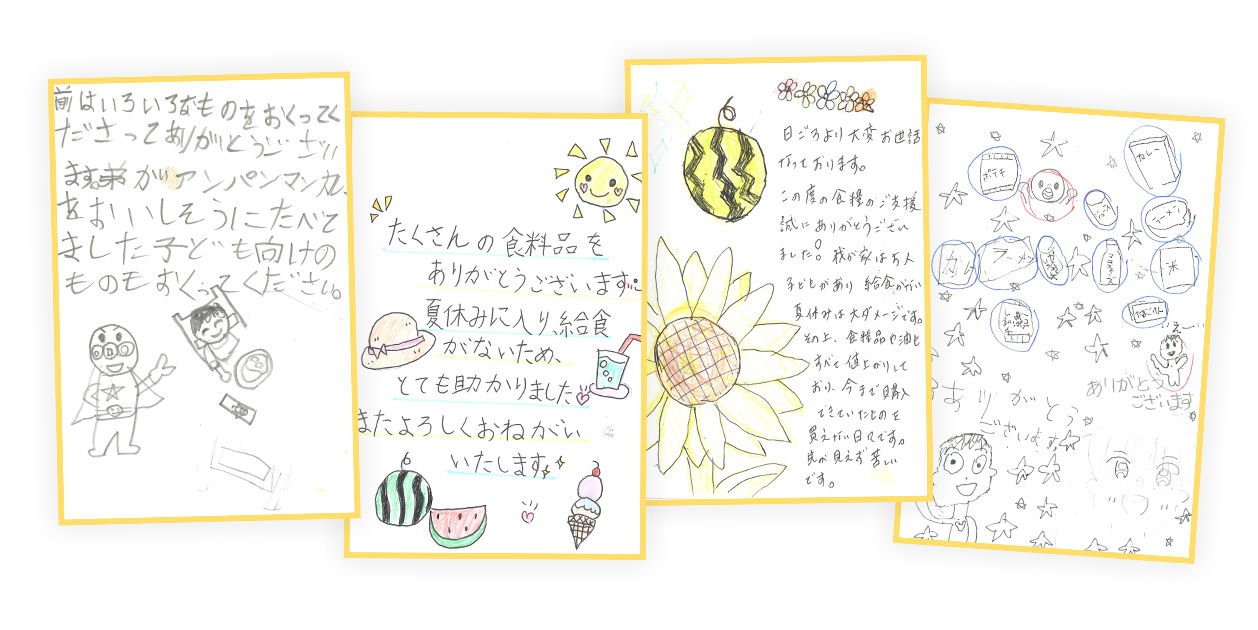 前はいろいろなものをおくってく
ださってありがとうござい
ます。弟がアンパンマンカレー
をおいしそうにたべて
ました子ども向けの
ものもおくってください。
たくさんの食料品を
ありがとうございます!!
夏休みに入り、給食
がないため、
とても助かりました
またよろしくおねがい
いたします
日ごろより大変お世話
なっております。
この度の食糧のご支援
誠にありがとうござい
ました。我が家はお人
子どもがあり 給食がない
夏休みは大ダメージです。
その上、食料品や油も
すべて値上がりして
おり、今まで購入
できていたものを
買えない日々です。
先が見えず苦しい
です。
ポテチ
カレー
ジュース
ラーメン
カレー
ラーメン
マヨネーズ
米
えー
ありがとう
ございます
ありがとう
ございます